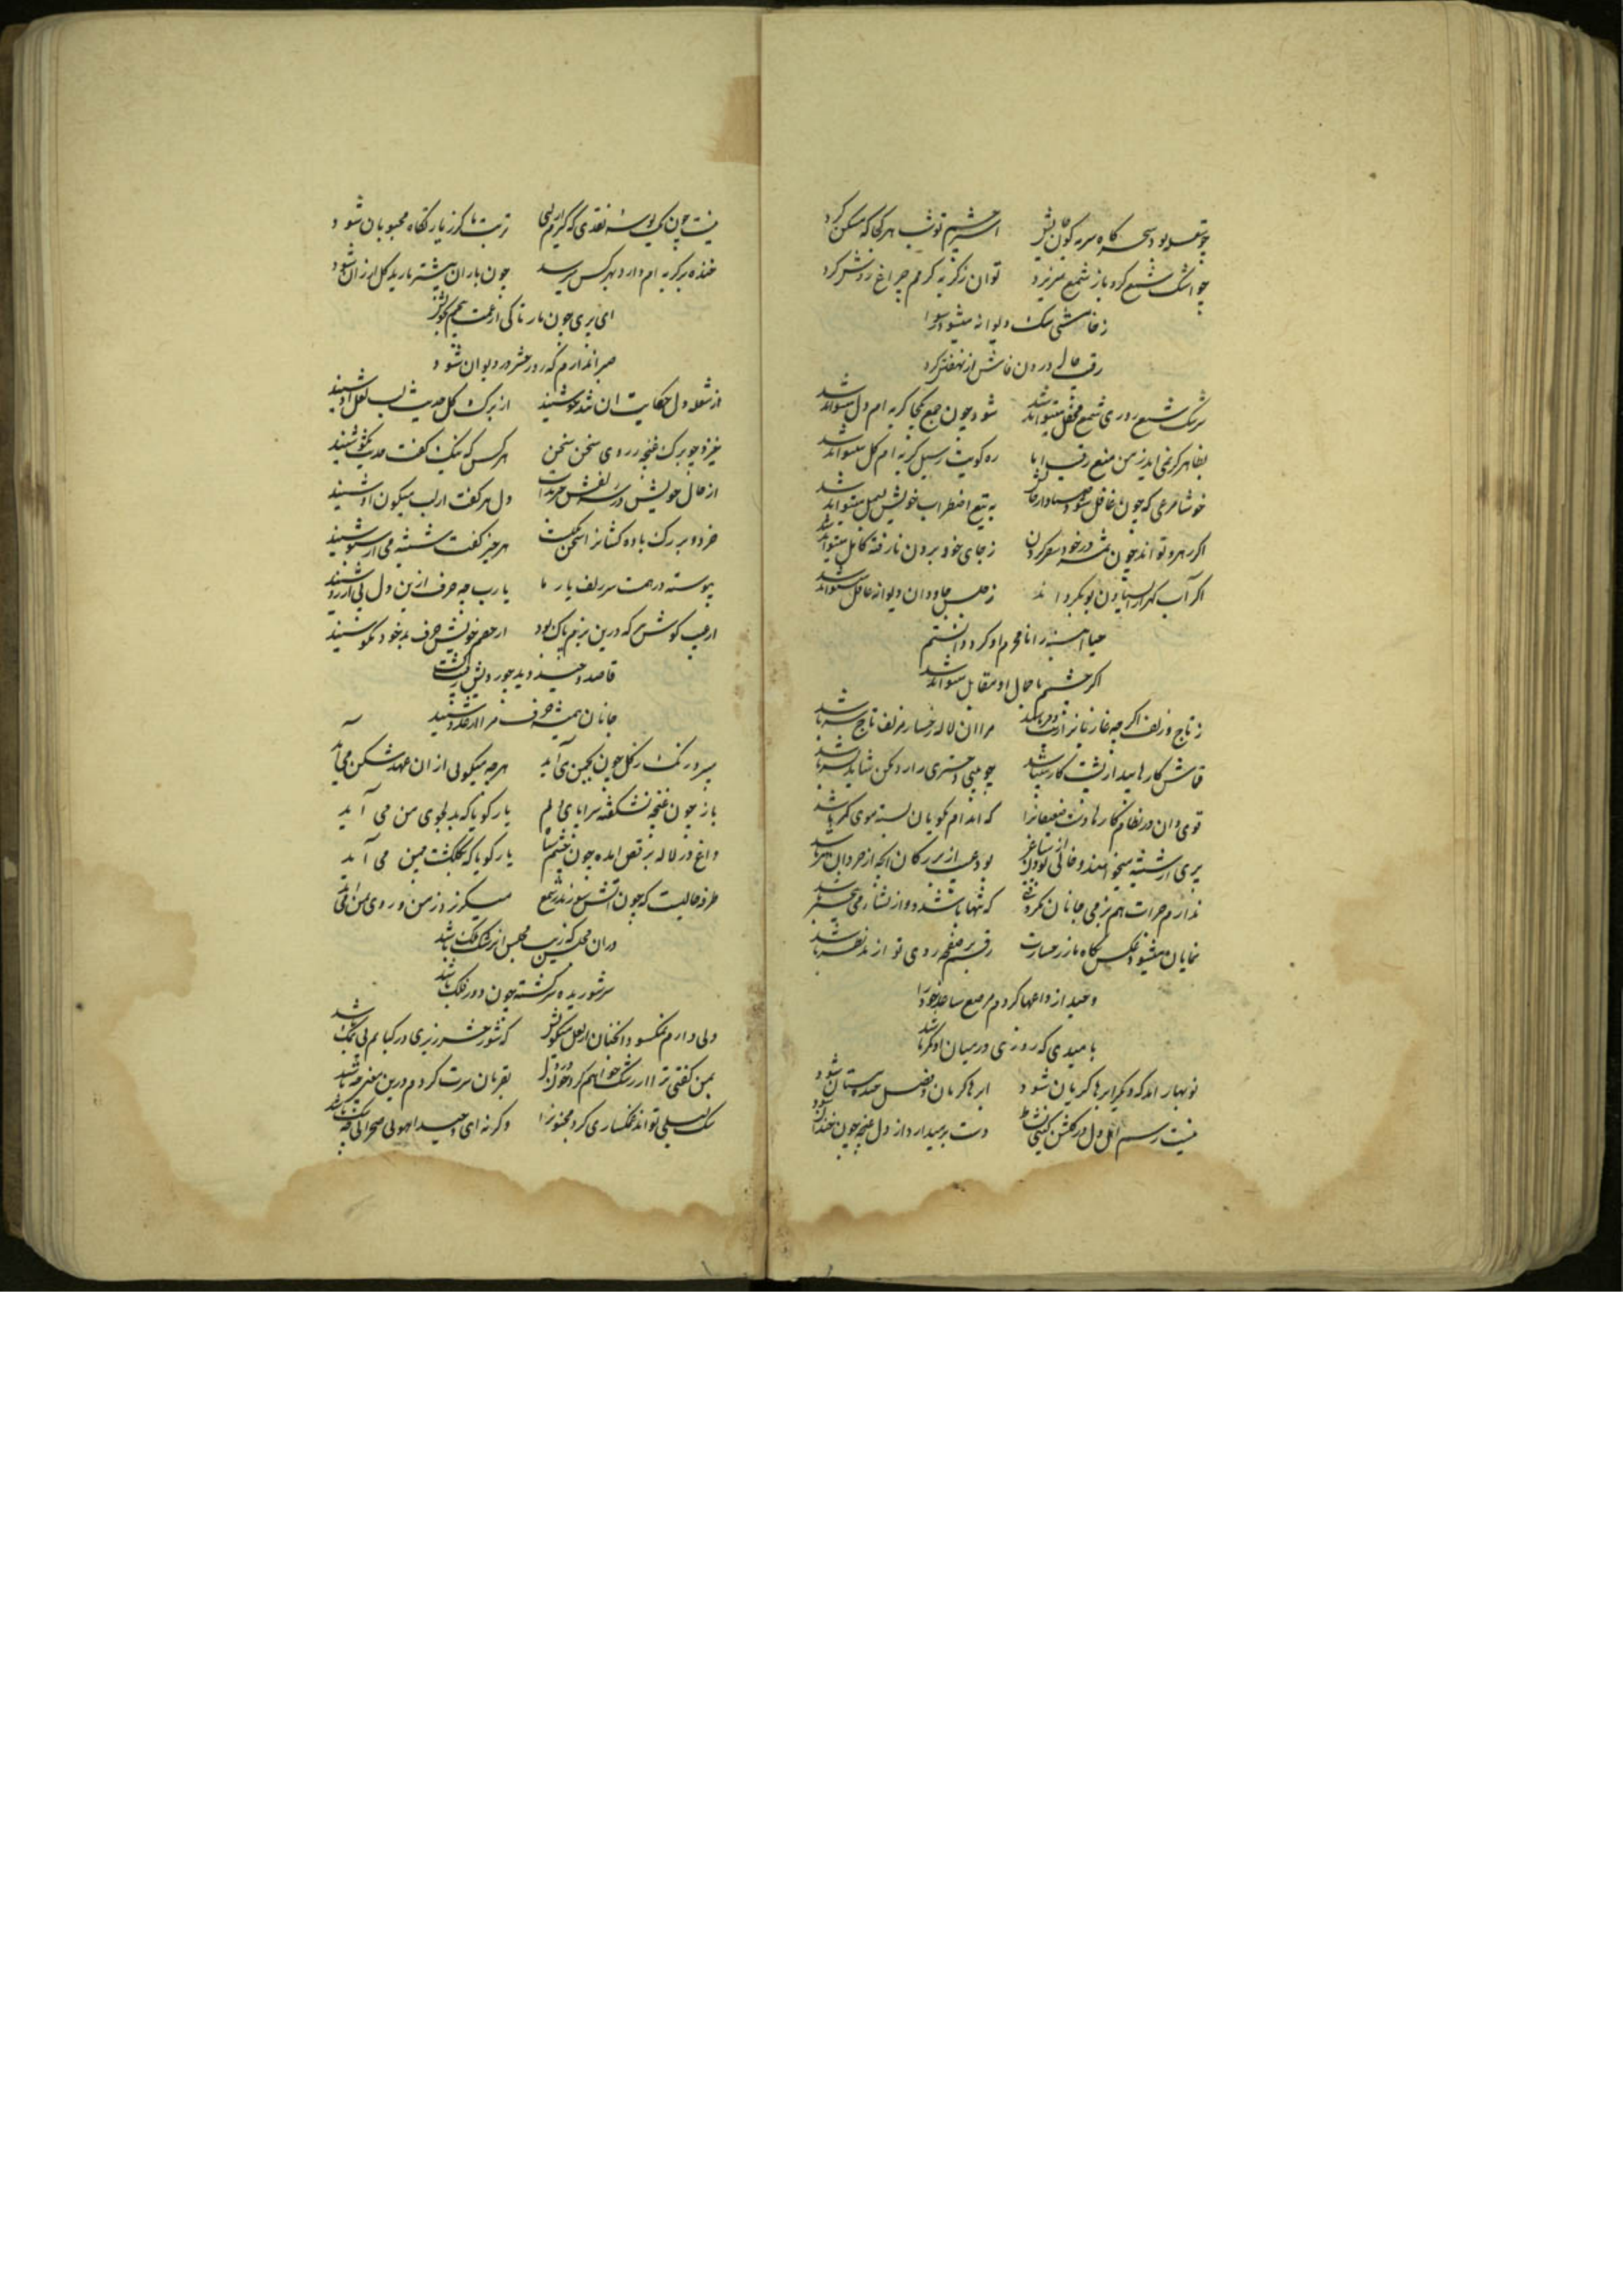 چو شعله بود سحر کاه سر به کوی تابش اسیر چشم تو شب هر کجا که مسکن کرد
چو اشک شمع کرد باز شمع میریزد توان ز کریه کرمم چراغ روشن کرد
ز خامشی سک دیوانه میشود رسوا
رقیب حال درون فاش از نهفتن کرد
سرشک شمع روزی شمع محفل میتواند شد شود چون جمع یکجا کریه ام دل میتواند شد
بظاهر کر نمی اید ز من منع رقیب اما ره کویت ز سیل کریه ام کل میتواند شد
خوشا مرغی که چون غافل شود صیاد از حالش به تیغ اضطراب خویش بسمل میتواند شد
اکر رهرو تواند چون در خود سفر کردن ز جای خود برون نارفته کامل میتواند شد
اکر آب کهر از ایستادن بو بکرداند ز حبس جاودان دیوانه عاقل میتواند شد
حیا اینه را نامحرم او کرد دانستم
اکر چشمم باحال او مقابل میتواند شد
ز تاج و زلف اکر چه غازیانرا مرا ان لاله رخسار مزلف تاج سر باشد
قماش کارها پیدا ز پشت کار میباشد چو بینی دختری را رد مکن شاید پسر باشد
قوی دان در نظام کارها دست ضعیفانرا که اندام نکویان بسته موی کمر باشد
پری از شیشه میخواهند و خالی بودن از ساغر بود عیب از بزرکان انچه از خردان هنر باشد
ندارم جرات هم بزمی جانان که تنها باشد و از نشاء می بیخبر باشد
نمایان میشود عکس نکاه ما ز رخسارت رقم بر صفحه روی تو از مد نظر باشد
وحید از داغها کردم مرصع ساعد خود را
بامیدی که روزی در میان او کمر باشد
نوبهار امد که دیکر ابرها کریان شود ابرها کریان و فصل خنده مستان شود
نیست رسم اهل دل در کلشن کیتی نشاط دست بر میدارد از دل غنچه چون خندان شود
نیست چون یک بوسه نقدی که کیرم از لبی تربت ما کر زیارتکاه محبوبان شود
خنده بر کریه ام دارد بهر کس میرسد چون باران بیشتر بارید کل ارزان شود
ای پری چون مار تا کی از غمت پیچم بخویش
صبر اندارم که روز حشر در دیوان شود
از شعله دل حکایت ان تندخو شنید از برک کل حدیث لب لعل او شنید
خیزد چو برک غنچه ز روی سخن سخن هر کس که نیک کفت حدیث نکو شنید
از حال خویش در پس لبش حرفها دل هر کفت از لب میکون او شنید
خردو بزرک باده کشانرا سخن یکیست هر چیز کفت شیشه می از سبو شنید
پیوسته درهمست سر زلف یار ما یارب چه حرف ازین دل بی آرزو شنید
از عیب کوش هر که درین بزم پاک بود از خصم خویش حرف بد خود نکو شنید
قاصد وحید دید چو رویش ز رشک
جانان همیشه حرف مرا از عدو شنید
میرود رنک ز کل چون بچمن می آید هر چه میکوئی از ان عهد شکن می آید
باز چون غنچه نشکفته سراپای دلم یار کویا که بدلجوی من می آید
داغ در لاله برقص امده چون چشم یار کویا که بکلکشت چمن می آید
طرفه حالیست که چون اتش سوزنده شمع میکریزد ز من و روی بمن می آید
دران محفل که زیب مجلس ان رشک ملک باشد
سر شوریده سرکشته چون دور فلک باشد
دلی دارم نمکسود انچنان از لعل میکونش که شور حشر ریزی در کبابم بی نمک باشد
بمن کفتی ترا از رشک خواهم کرد خون در دل بقربان سرت کردم درین معنی چه شک باشد
سک لیلی تواند غمکساری کرد مجنونرا وکرنه ای وحید اهوی صحرائی چه سک باشد